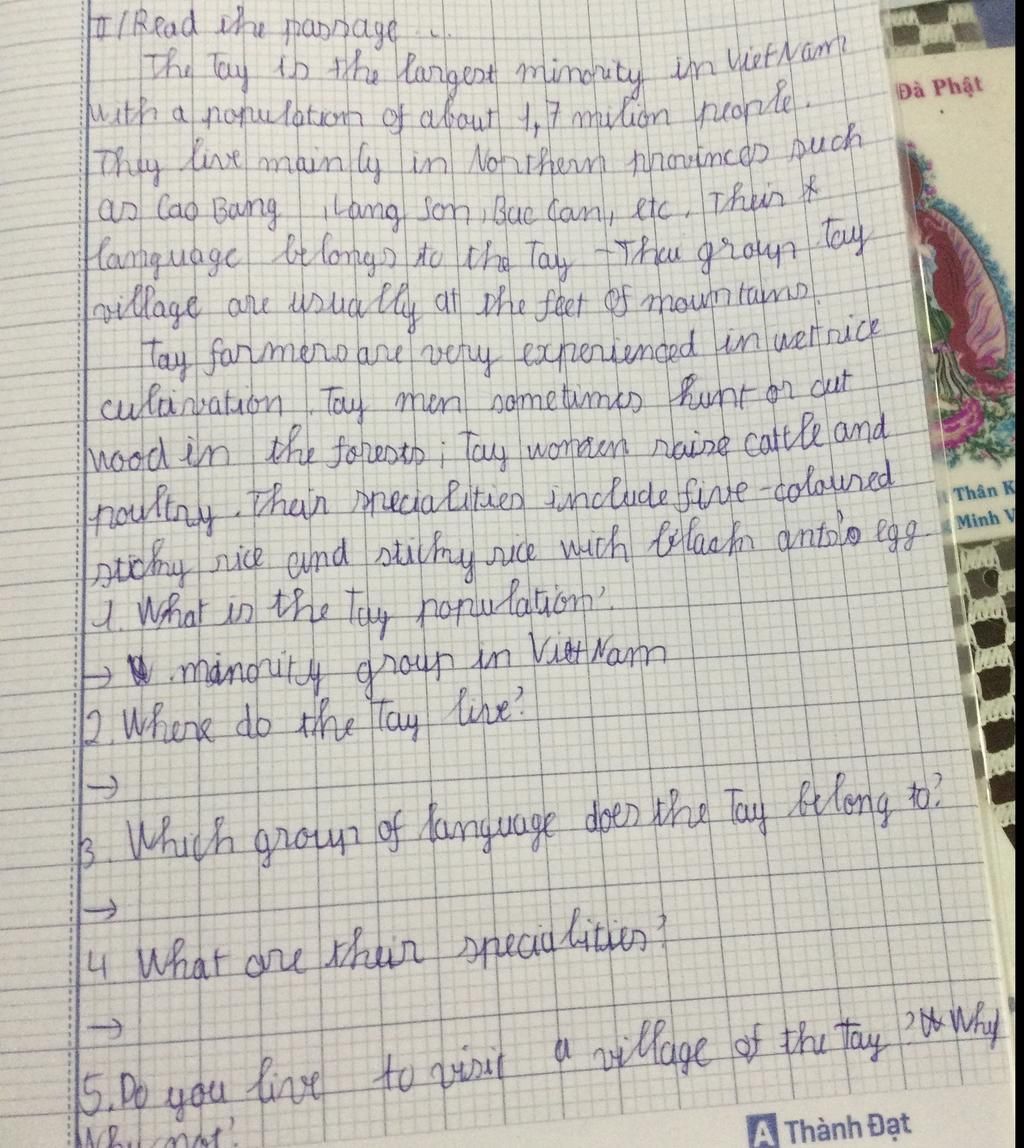 II/Read the passage ...
The Tay is the largest minority in VietNam
with a population of about 1,7 milion people.
They live mainly in Northern provinces such
as Cao Bang, Lang Son, Bac Can, etc. Their
language belongs to the Tay - Thai group Tay
village are usually at the feet of mountains.
Tay farmers are very experienced in wet rice
cultivation. Tay men sometimes hunt or cut
wood in the forests; Tay women raise cattle and
poultry. Their specialities include five-coloured
sticky rice and sticky rice with black egg
1. What is the Tay population?
→ minority group in VietNam
2. Where do the Tay live?
→
3. Which group of language does the Tay belong to?
→
4 What are their specialities?
→
5. Do you live to visit a village of the Tay? Why
Why not?
Đà Phật
Thân K
Minh V
A Thành Đạt